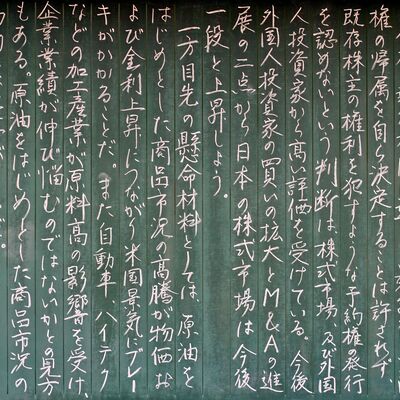 権の帰属を自ら決定することは許されず、
既存株主の権利を犯すような予約権の発行
を認めないという判断は、株式市場、及び外国
人投資家から高い評価を受けている。今後
外国人投資家の買いの拡大とM&Aの進
展の二点から日本の株式市場は今後
一段と上昇しよう。
一方目先の懸命材料としては、原油を
はじめとした商品市況の高騰が物価お
よび金利上昇につながり米国景気にブレー
キがかかることだ。また自動車、ハイテク
などの加工産業が原料高の影響を受け、
企業業績が伸び悩むのではないかとの見方
もある。原油をはじめとした商品市況の